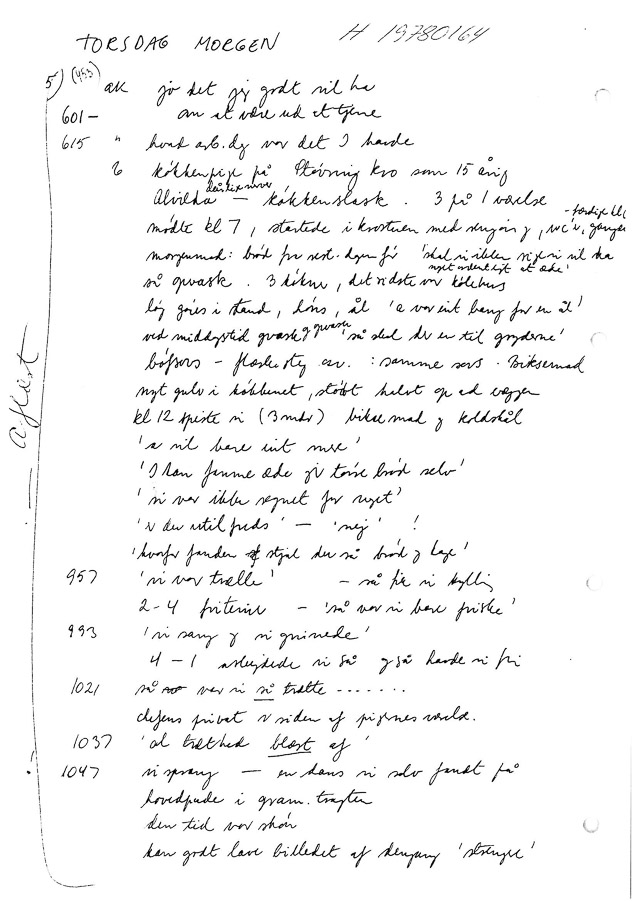 TORSDAG MORGEN H 19780164
5) (453) ak jo det jeg godt vil ha
601- om at være ud et tjene
615 " hvad arb.dg var det I havde
6 køkkenpige på Støvning Kro som 15 årig
Alvilda — køkkenslask . 3 på 1 værelse
mødte kl 7, startede i krostuen med rengøring, wc'er, gange
morgenmad: brød fra rest. dagen før 'skal vi ikke sige vi vil ha
noget ordentligt at æde'
så opvask . 3 køkner, det sidste var kølehus
løg gøres i stand, høns, ål 'a var int bang for en ål'
ved middagstid opvask og opvask 'så skal der en til gryderne'
bøfsovs - flæskesteg osv. : samme sovs . Biksemad
nyt gulv i køkkenet, støbt helt op ad væggen
kl 12 spiste vi (3 mdr) biksemad og koldskål
'a vil bare int mere'
'I kan fanme æde jer tørre brød selv'
'vi var ikke regnet for noget'
'er du utilfreds' — 'nej' !
'hvorfor fanden stjal der så brød og lage'
957 'vi var trælle' - så fik vi kylling
2-4 friterer - 'så var vi bare friske'
993 'vi sang og vi grinede'
4 - 1 arbejdede vi så og så havde vi fri
1021 så var vi så trætte -------
chefens privat v siden af pigernes værelse.
1037 'al træthed blæst af'
1047 vi sprang — en dans vi selv fandt på
hovedpude i gram.tragten
den tid var skøn
kan godt lave billedet af dengang 'strenge'
Aflæst